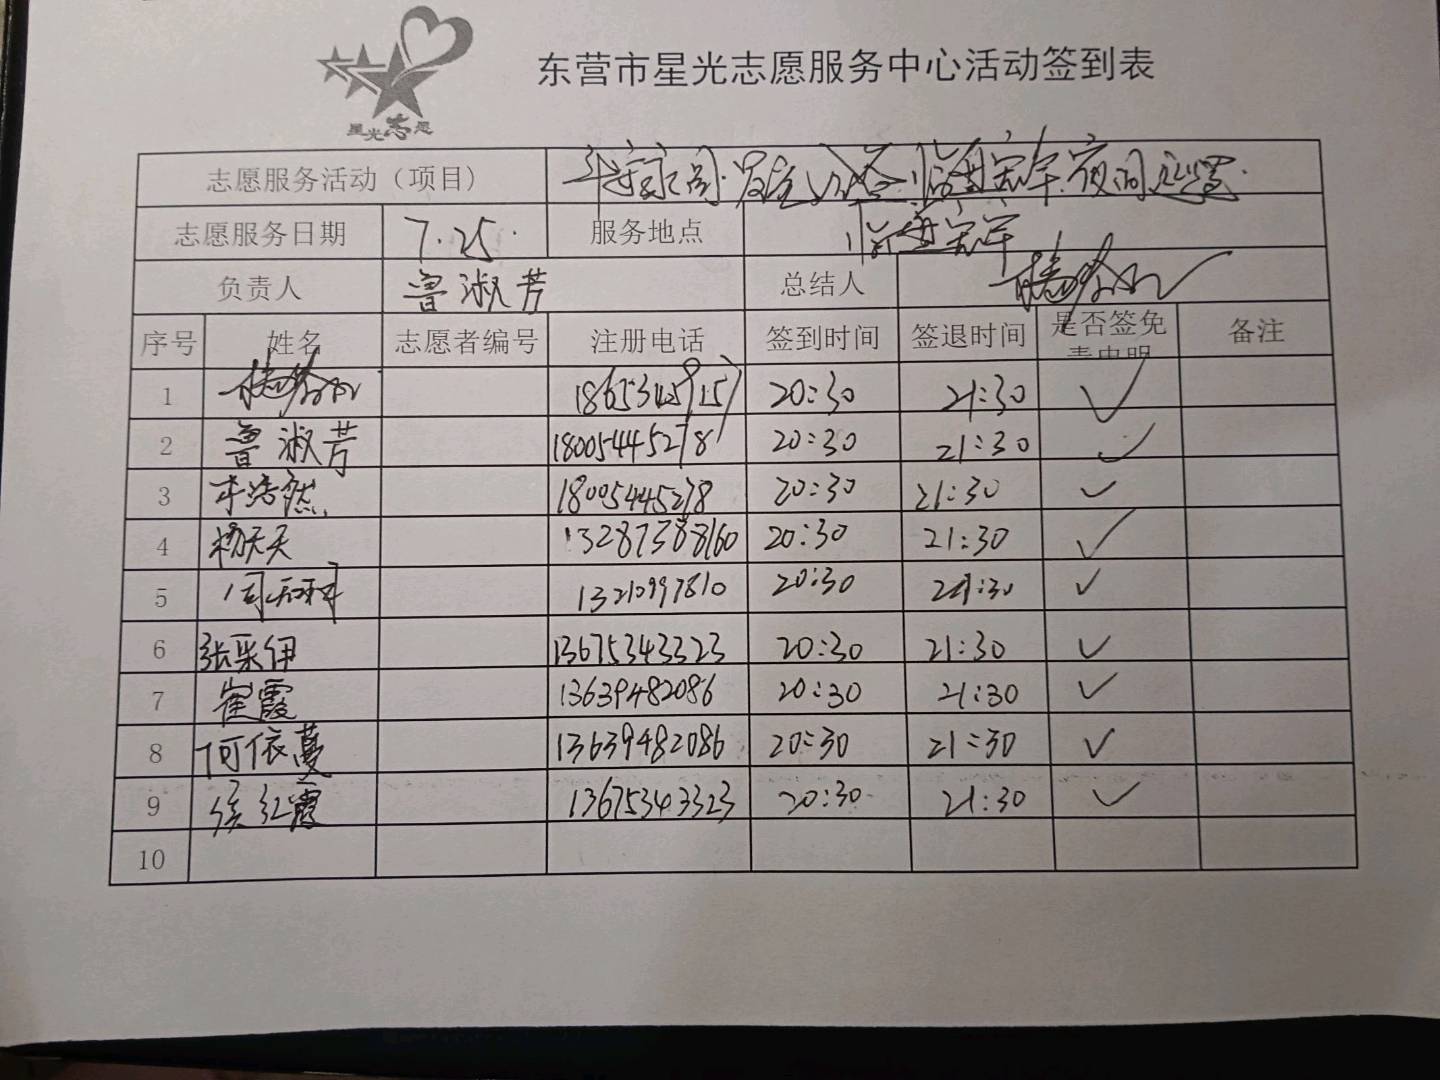 星光志愿
东营市星光志愿服务中心活动签到表
志愿服务活动（项目）
志愿服务日期 7.25. 服务地点
负责人 鲁淑芳 总结人
序号 姓名 志愿者编号 注册电话 签到时间 签退时间 是否签免责声明 备注
1 20:30 21:30 ✓
2 鲁淑芳 18005445278 20:30 21:30 ✓
3 李浩然 18005445278 20:30 21:30 ✓
4 杨天天 13287388160 20:30 21:30 ✓
5 13210997810 20:30 21:30 ✓
6 张采伊 13675343323 20:30 21:30 ✓
7 崔霞 13639482086 20:30 21:30 ✓
8 何依蔓 13639482086 20:30 21:30 ✓
9 侯红霞 13675343323 20:30 21:30 ✓
10